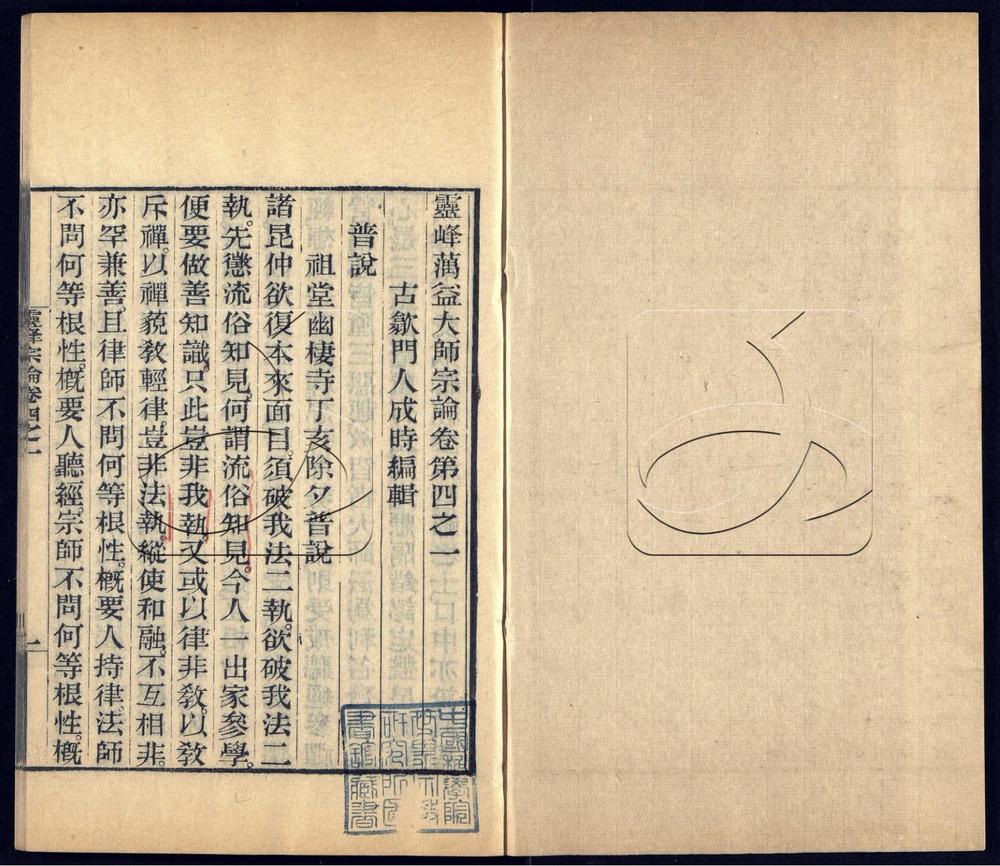 靈峰蕅益大師宗論卷第四之一
古歙門人成時編輯
普說
祖堂幽棲寺丁亥除夕普說
諸昆仲欲復本來面目。須破我法二執。欲破我法二
執。先懲流俗知見。何謂流俗知見。今人一出家參學。
便要做善知識。只此豈非我執。又或以律非敎。以敎
斥禪。以禪藐敎輕律。豈非法執。縱使和融。不互相非。
亦罕兼善。且律師不問何等根性。槪要人持律。法師
不問何等根性。槪要人聽經。宗師不問何等根性。槪
靈峰宗論卷四之一
一